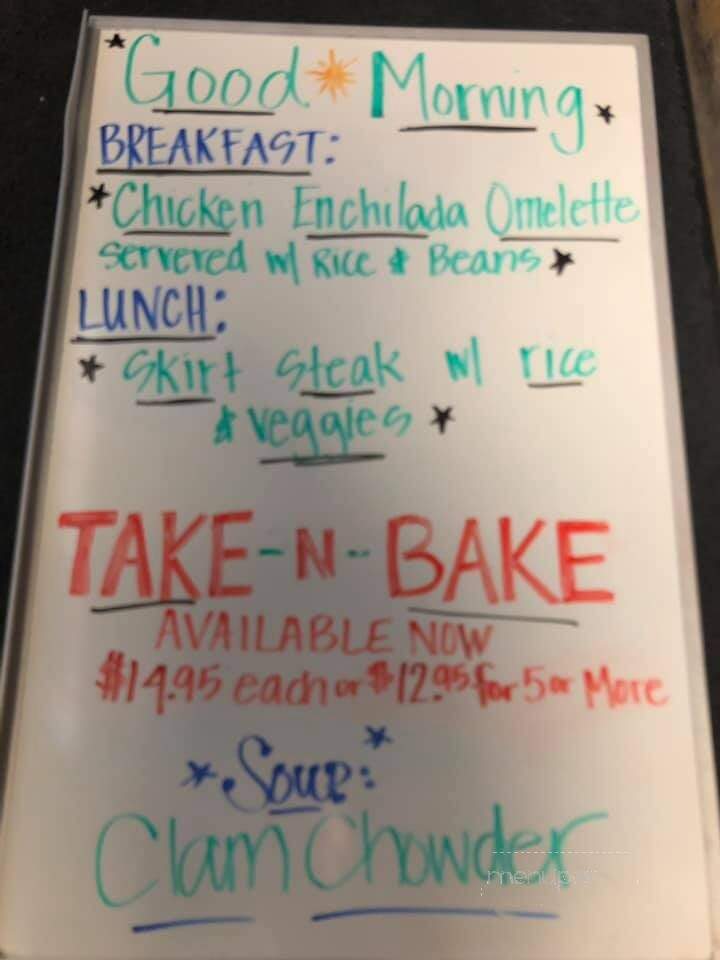 Good Morning
BREAKFAST:
Chicken Enchilada Omelette
servered w/ Rice & Beans
LUNCH:
Skirt Steak w/ rice
& veggies
TAKE-N-BAKE
AVAILABLE NOW
$14.95 each or $12.95 for 5 or More
Soup:
Clam Chowder